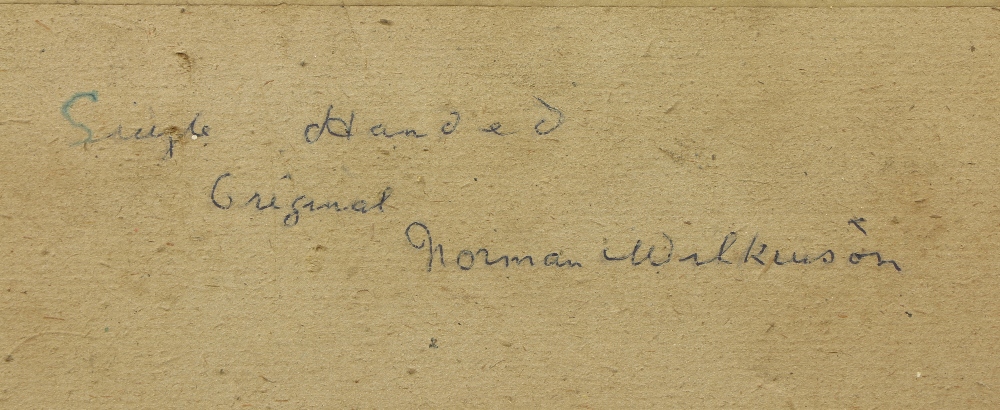 Single Handed
Original
Norman Wilkinson